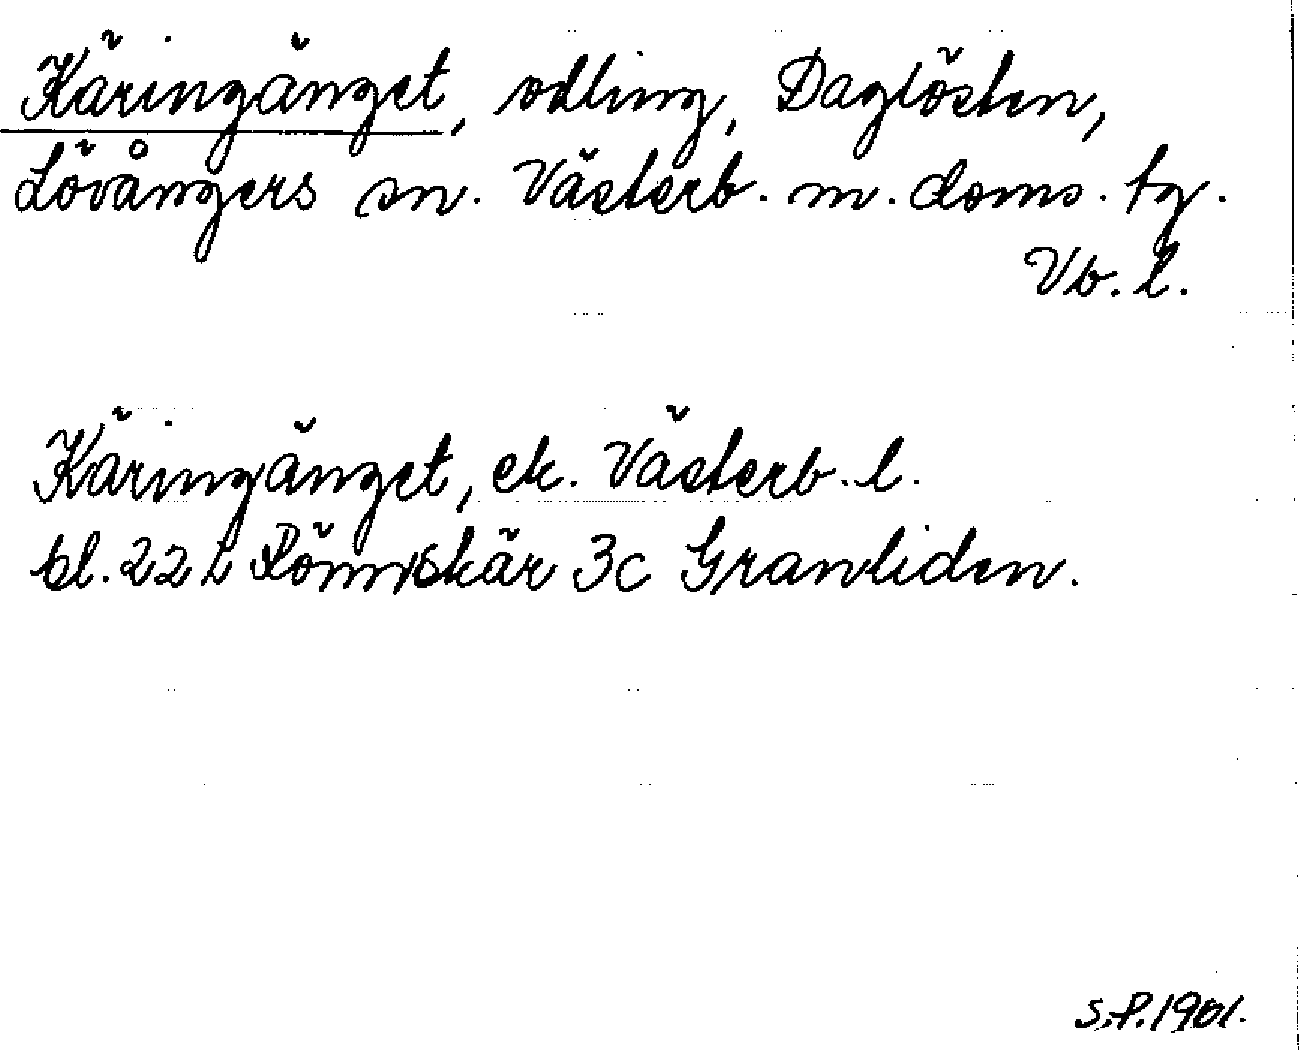 Käringänget, odling, Daglösten,
Lövångers sn. Västerb. m. doms. tg.
Vb. l.
Käringänget, ek. Västerb. l.
bl. 22 L Rönnskär 3c Granliden.
S.P. 1961.